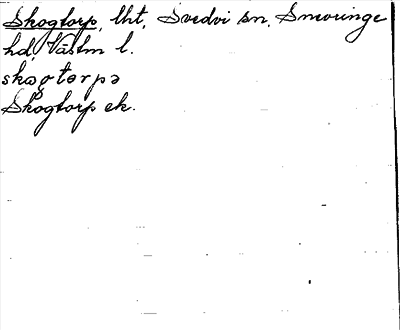 Skogtorp, lht, Svedvi sn, Snevringe
hd, Västm l.
skogtorpə
Skogtorp ek.